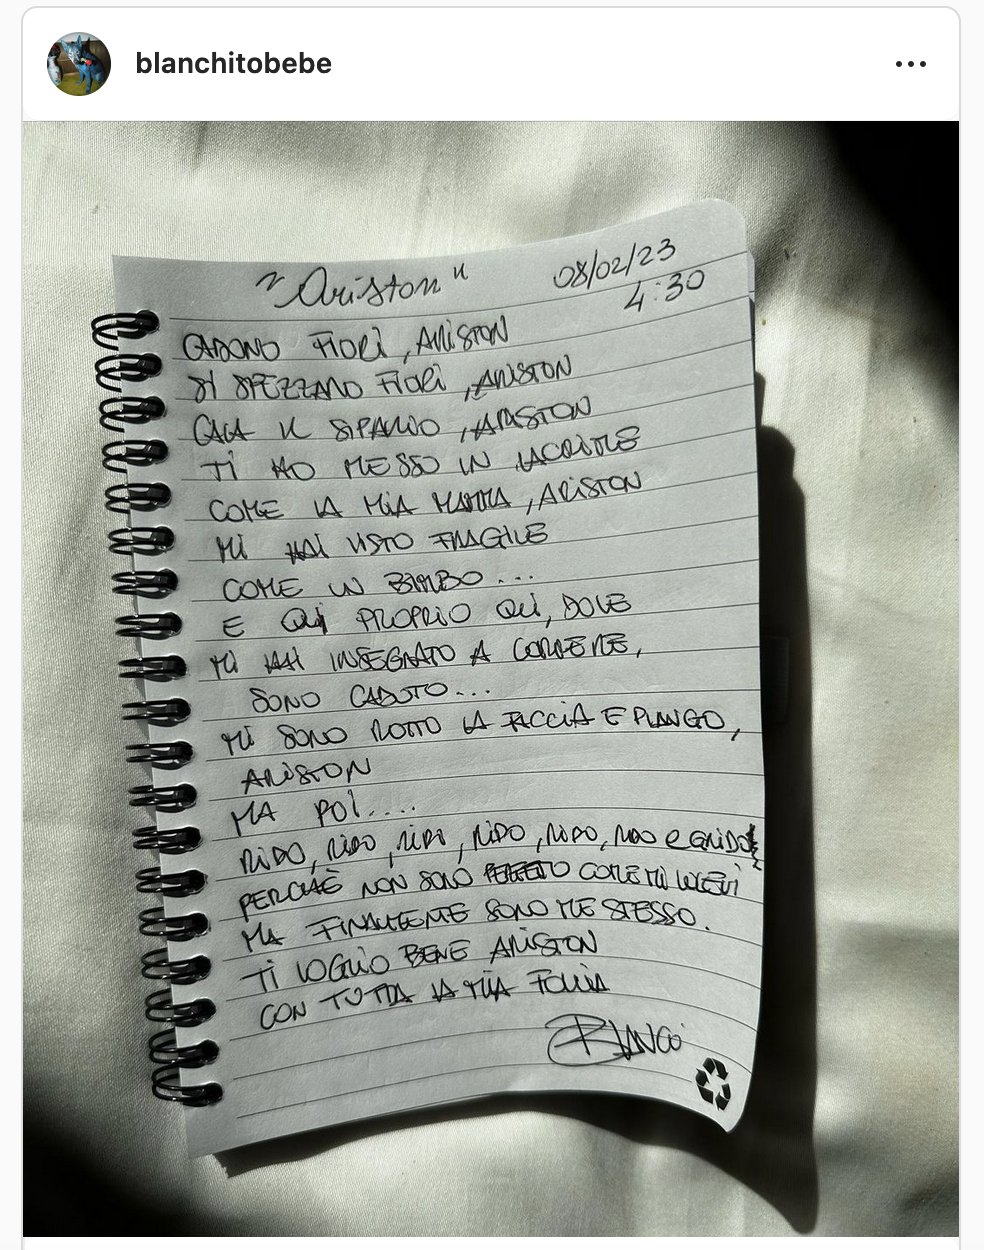 blanchitobebe
"Ariston" 08/02/23
4:30
CADONO FIORI, ARISTON
SI SPEZZANO FIORI, ARISTON
CALA IL SIPARIO, ARISTON
TI HO MESSO IN LACRIME
COME LA MIA MAMMA, ARISTON
MI HAI VISTO FRAGILE
COME UN BIMBO...
E QUI PROPRIO QUI, DOVE
MI HAI INSEGNATO A CORRERE,
SONO CADUTO...
MI SONO ROTTO LA FACCIA E PIANGO,
ARISTON
MA POI....
RIDO, RIDO, RIDO, RIDO, RIDO, RIDO E GRIDO
PERCHÈ NON SONO PERFETTO COME MI VOLEVI
MA FINALMENTE SONO ME STESSO.
TI VOGLIO BENE ARISTON
CON TUTTA LA MIA FOLLIA
BLANCO